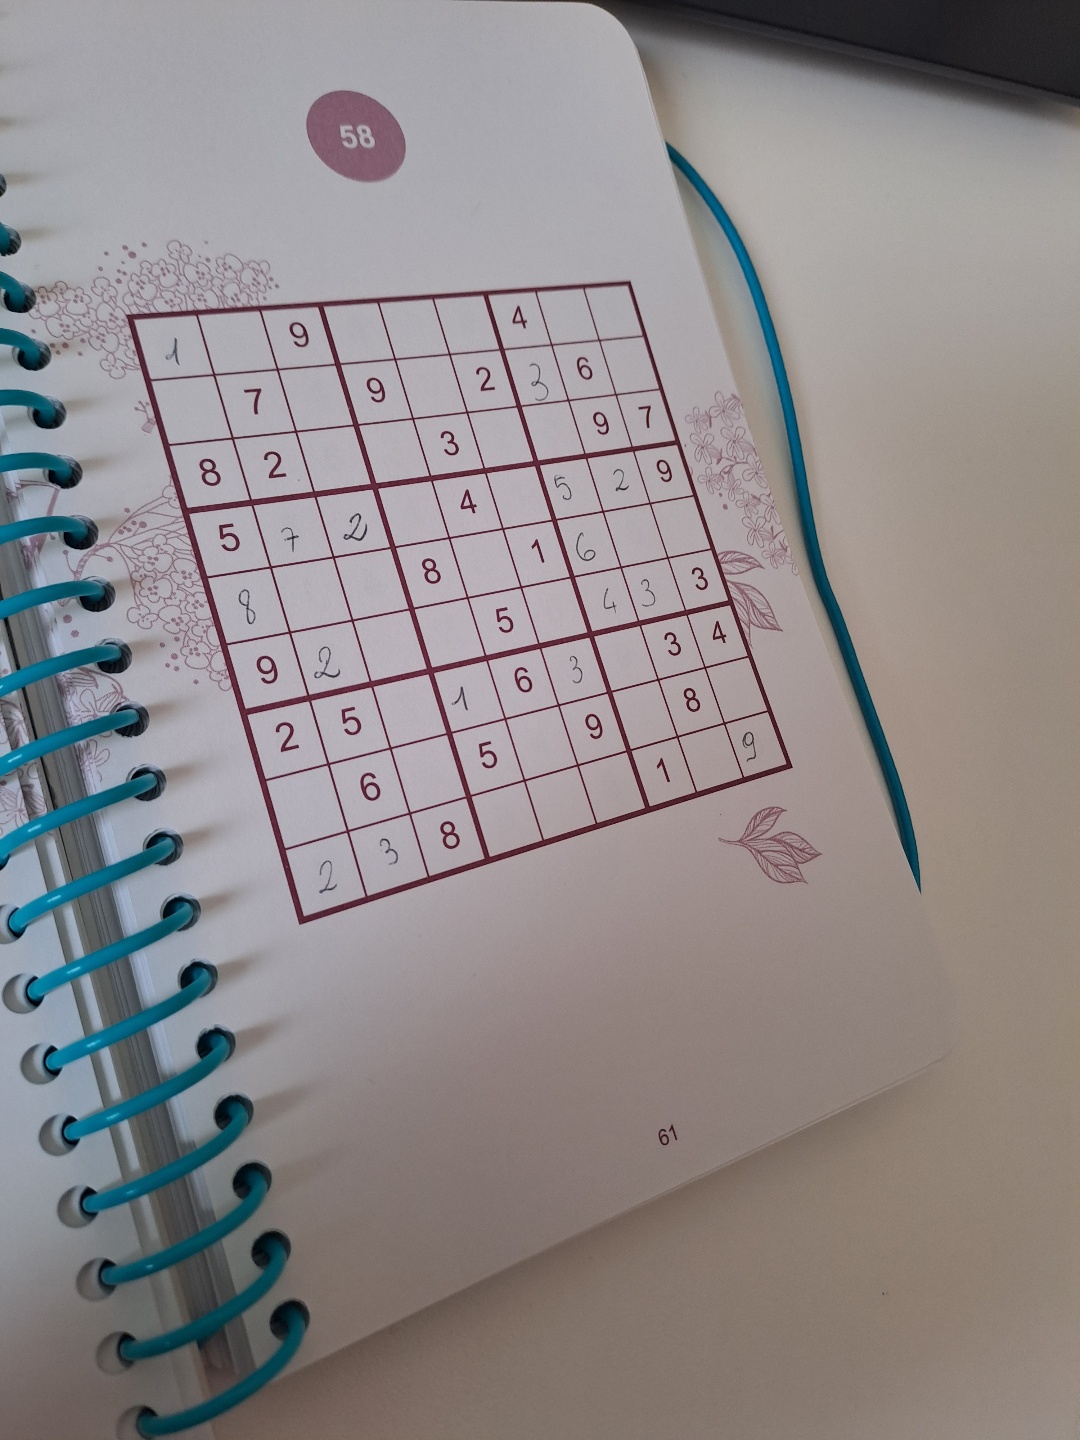 58
1 9 4
7 9 2 3 6
8 2 3 9 7
5 7 2 4 5 2 9
8 8 1 6
9 2 5 4 3 3
2 5 1 6 3 3 4
6 5 9 8
2 3 8 1 9
61